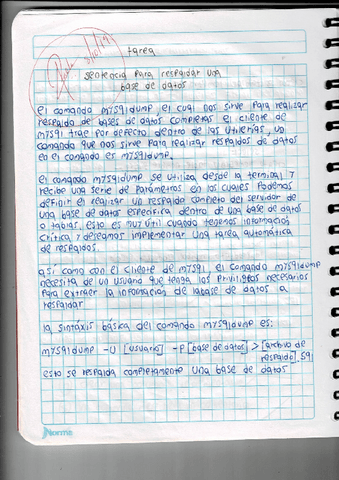 tarea
sentencia para respaldar una
base de datos
el comando mysqldump, el cual nos sirve para realizar
respaldo de bases de datos completas el cliente de
mysql trae por defecto dentro de las utilerias, un
comando que nos sirve para realizar respaldos de datos
ed el comando es mysqldump.
el comando mysqldump se utiliza desde la terminal y
recibe una serie de parametros en los cuales podemos
definir el realizar un respaldo completo del servidor de
una base de datos especifica dentro de una base de datos
o tablas, esto es muy útil cuando tenemos información
crítica y deseamos implementar una tarea automática
de respaldos.
así como con el cliente de mysql el comando mysqldump
necesita de un usuario que tenga los privilegios necesarios
para extraer la información de labase de datos a
respaldar
la sintáxis básica del comando mysqldump es:
mysqldump -U [usuario] -P [base de datos] > [archivo de
respaldo].sql
esto se respalda completamente una base de datos
Norma